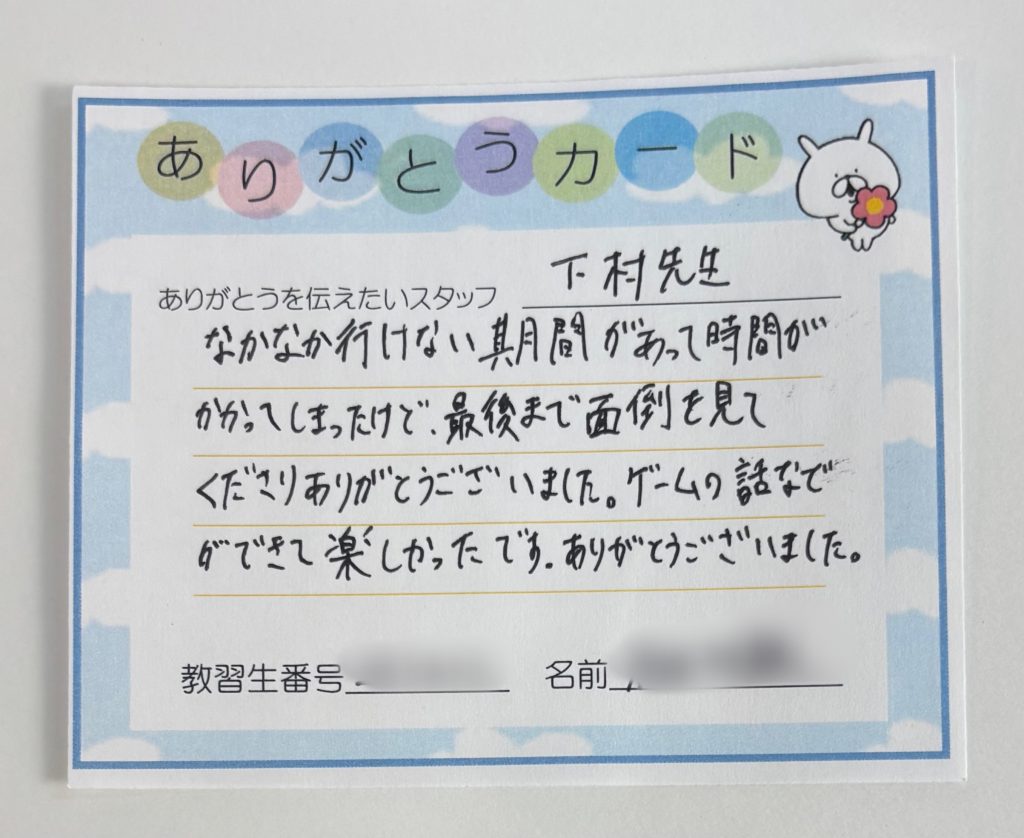 ありがとうカード
ありがとうを伝えたいスタッフ 下村先生
なかなか行けない期間があって時間が
かかってしまったけど、最後まで面倒を見て
くださりありがとうございました。ゲームの話など
ができて楽しかったです。ありがとうございました。
教習生番号 名前